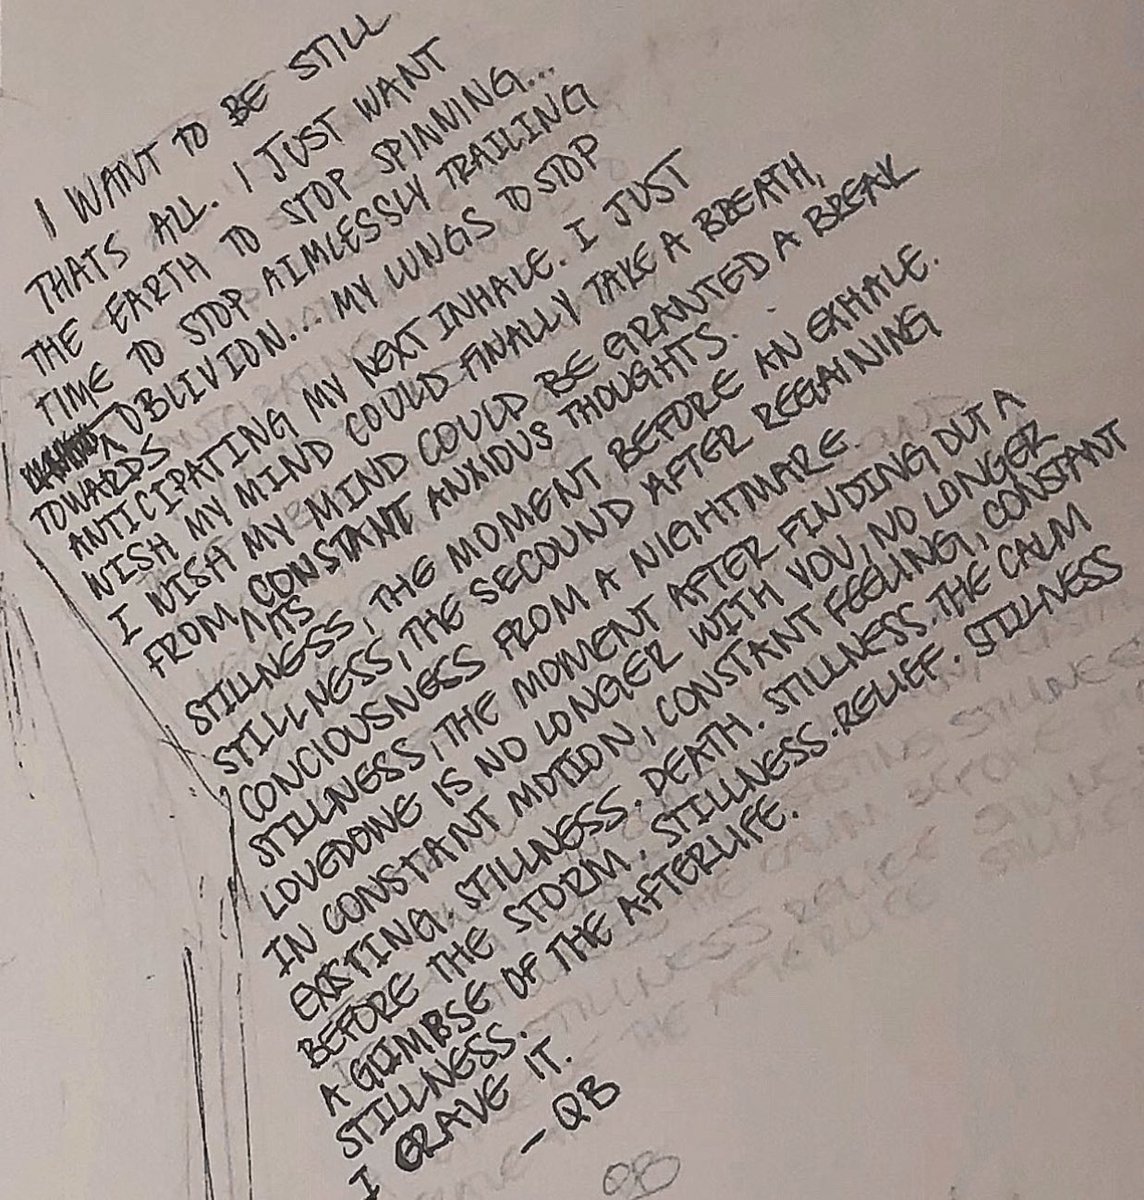 I WANT TO BE STILL
THATS ALL. I JUST WANT
THE EARTH TO STOP SPINNING...
TIME TO STOP AIMLESSLY TRAILING
TOWARDS OBLIVION... MY LUNGS TO STOP
ANTICIPATING MY NEXT INHALE. I JUST
WISH MY MIND COULD FINALLY TAKE A BREATH,
I WISH MY MIND COULD BE GRANTED A BREAK
FROM ITS CONSTANT ANXIOUS THOUGHTS.
STILLNESS, THE MOMENT BEFORE AN EXHALE.
STILLNESS, THE SECOUND AFTER REGAINING
CONCIOUSNESS FROM A NIGHTMARE.
STILLNESS, THE MOMENT AFTER FINDING OUT A
LOVEDONE IS NO LONGER WITH YOU, NO LONGER
IN CONSTANT MOTION, CONSTANT FEELING, CONSTANT
EXISTING. STILLNESS. DEATH. STILLNESS. THE CALM
BEFORE THE STORM. STILLNESS. RELIEF. STILLNESS
A GLIMBSE OF THE AFTERLIFE.
STILLNESS.
I CRAVE IT.
-QB
QB